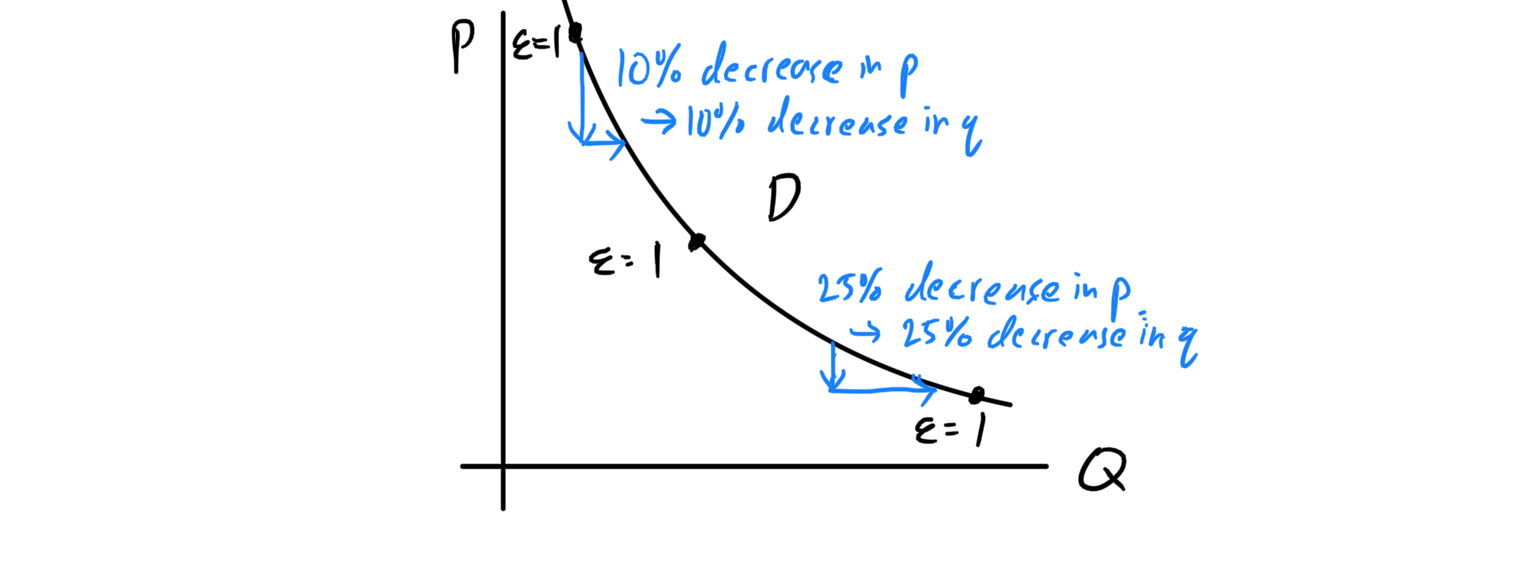 P
ε=1
10% decrease in p
→ 10% decrease in q
D
ε= 1
25% decrease in p
→ 25% decrease in q
ε= 1
Q